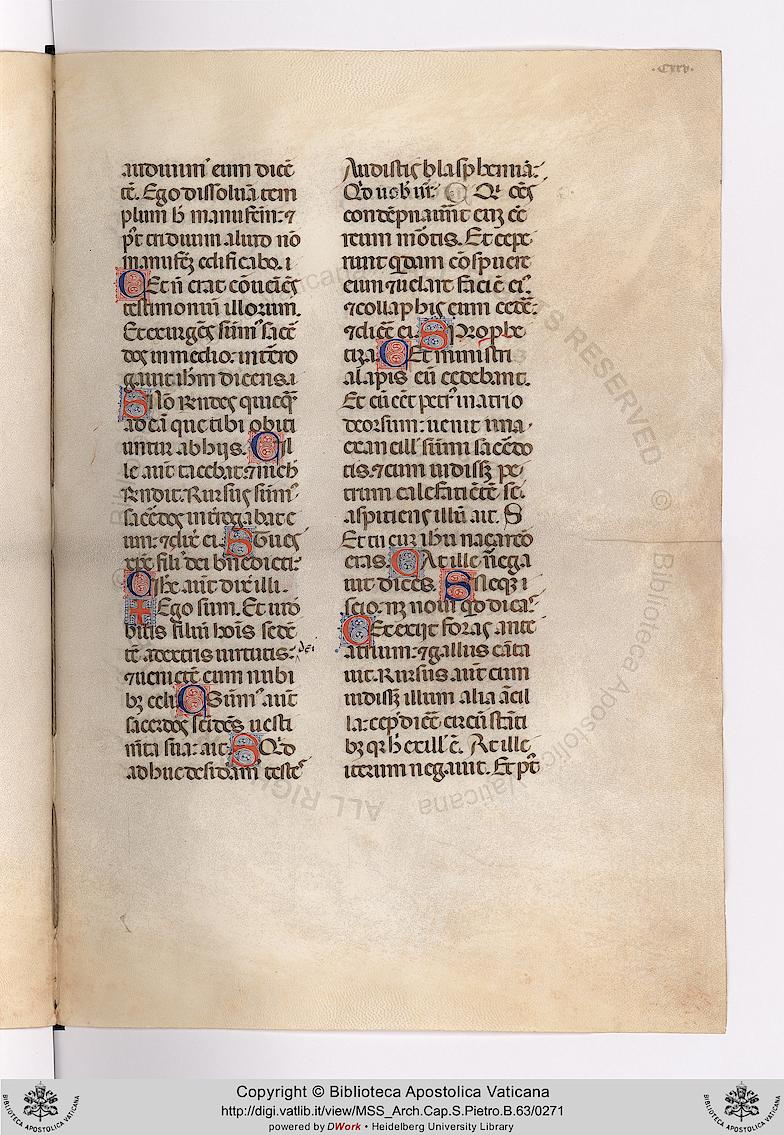 ·Cxxv·
audiuim' eum dicē
tē. Ego dissoluā tem
plum h' manufcm: ⁊
p't triduum aliud nō
manufcꝫ edificabo. i
C Et n̄ erat cōueniēs
testimoniū illorum.
Et exurgēs sūm' sacē
dos in medio: intēro
gauit ihm dicens. i
S Nō respondes quicq̄
ad ea que tibi obici
untur ab hijs. C Il
le aut tacebat: ⁊ nich
respondit. Rursus sūm'
sacēdos interrogabat e
um: ⁊ dix ei. S Tu es
xpc fili' dei bn̄edicti:
C ihc aut dix illi.
✝ Ego sum. Et uide
bitis filiū hoīs sedē
tē a dextris uirtutis: dei
⁊ uenietē cum nubi
bꝫ celi. C Sūm' aut
sacerdos scidēs uesti
mta sua: ait. S Qd
adhuc desidam' testes
Audistis blasphemiā:
Qd uob' uit'. C Qi oēs
condēpnauert eū ēē
reum mortis. Et cepe
runt qdam cōspuere
eum ⁊ uelare faciē ei'
⁊ collaphis eum cedē:
⁊ dicē ei. S Prophe
tiza. C Et ministri
alapis eū cedebant.
Et cū eēt petr' in atrio
deorsum: uenit una
ex ancill' sūmi sacēdo
tis. ⁊ cum uidissꝫ pe
trum calefaciētē se:
aspiciens illū ait. S
Et tu cū ihu naçareo
eras. C At ille nega
uit dicēs. S Neqꝫ s
scio: nꝫ noui qd dicas
C Et exijt foras ante
atrium: ⁊ gallus cāta
uit. Rursus aut cum
uidissꝫ illum alia ācil
la: cep' dicē circūstāti
bꝫ qr h' ex ill' ē. At ille
iterum negauit. Et p't
ALL RIGHTS RESERVED © Biblioteca Apostolica Vaticana
Copyright © Biblioteca Apostolica Vaticana
http://digi.vatlib.it/view/MSS_Arch.Cap.S.Pietro.B.63/0271
powered by DWork • Heidelberg University Library
BIBLIOTECA APOSTOLICA VATICANA
BIBLIOTECA APOSTOLICA VATICANA